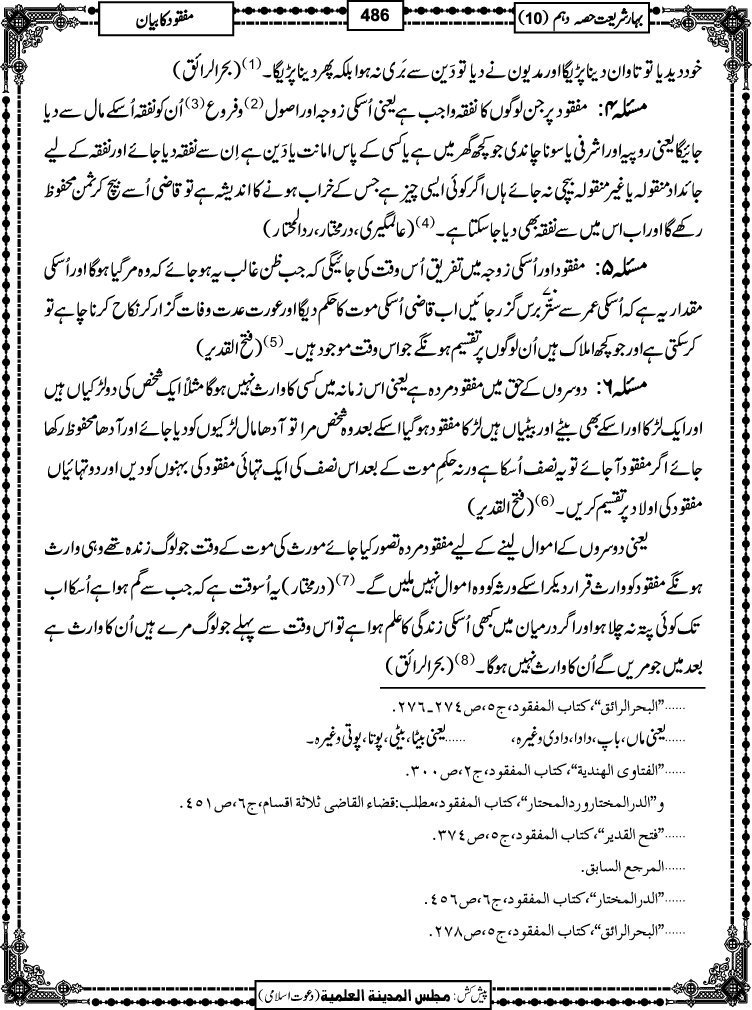 بہار شریعت حصہ دہم (10)
486
مفقود کا بیان
خود دیدیا تو تاوان دینا پڑیگا اور مدیون نے دیا تو دَین سے بَری نہ ہوا بلکہ پھر دینا پڑیگا۔(1) (بحرالرائق)
مسئلہ ۴: مفقود پر جن لوگوں کا نفقہ واجب ہے یعنی اُسکی زوجہ اور اصول(2) و فروع(3) اُن کو نفقہ اُسکے مال سے دیا
جائیگا یعنی روپیہ اور اشرفی یا سونا چاندی جو کچھ گھر میں ہے یا کسی کے پاس امانت یا دَین ہے اِن سے نفقہ دیا جائے اور نفقہ کے لیے
جائداد منقولہ یا غیر منقولہ بیچی نہ جائے ہاں اگر کوئی ایسی چیز ہے جس کے خراب ہونے کا اندیشہ ہے تو قاضی اُسے بیچ کر ثمن محفوظ
رکھے گا اور اب اس میں سے نفقہ بھی دیا جاسکتا ہے۔(4) (عالمگیری، درمختار، ردالمحتار)
مسئلہ ۵: مفقود اور اُسکی زوجہ میں تفریق اُس وقت کی جائیگی کہ جب ظن غالب یہ ہو جائے کہ وہ مرگیا ہوگا اور اُسکی
مقدار یہ ہے کہ اُسکی عمر سے ستّر ۷۰ برس گزر جائیں اب قاضی اُسکی موت کا حکم دیگا اور عورت عدت وفات گزار کر نکاح کرنا چاہے تو
کرسکتی ہے اور جو کچھ املاک ہیں اُن لوگوں پر تقسیم ہونگے جو اس وقت موجود ہیں۔(5) (فتح القدیر)
مسئلہ ۶: دوسروں کے حق میں مفقود مردہ ہے یعنی اس زمانہ میں کسی کا وارث نہیں ہوگا مثلاً ایک شخص کی دو لڑکیاں ہیں
اور ایک لڑکا اور اسکے بھی بیٹے اور بیٹیاں ہیں لڑکا مفقود ہوگیا اسکے بعد وہ شخص مرا تو آدھا مال لڑکیوں کو دیا جائے اور آدھا محفوظ رکھا
جائے اگر مفقود آجائے تو یہ نصف اُسکا ہے ورنہ حکمِ موت کے بعد اس نصف کی ایک تہائی مفقود کی بہنوں کو دیں اور دو تہائیاں
مفقود کی اولاد پر تقسیم کریں۔(6) (فتح القدیر)
یعنی دوسروں کے اموال لینے کے لیے مفقود مردہ تصور کیا جائے مورث کی موت کے وقت جو لوگ زندہ تھے وہی وارث
ہونگے مفقود کو وارث قرار دیکر اسکے ورثہ کو وہ اموال نہیں ملیں گے۔(7) (درمختار) یہ اُسوقت ہے کہ جب سے گم ہوا ہے اُسکا اب
تک کوئی پتہ نہ چلا ہو اور اگر درمیان میں کبھی اُسکی زندگی کا علم ہوا ہے تو اس وقت سے پہلے جو لوگ مرے ہیں اُن کا وارث ہے
بعد میں جو مریں گے اُن کا وارث نہیں ہوگا۔(8) (بحرالرائق)
......"البحرالرائق"، کتاب المفقود، ج٥، ص٢٧٤۔٢٧٦.
......یعنی ماں، باپ، دادا، دادی وغیرہ، ......یعنی بیٹا، بیٹی، پوتا، پوتی وغیرہ۔
......"الفتاوی الهندیة"، کتاب المفقود، ج٢، ص٣٠٠.
و "الدرالمختاروردالمحتار"، کتاب المفقود، مطلب: قضاء القاضی ثلاثة اقسام، ج٦، ص٤٥١.
......"فتح القدیر"، کتاب المفقود، ج٥، ص٣٧٤.
......المرجع السابق.
......"الدرالمختار"، کتاب المفقود، ج٦، ص٤٥٦.
......"البحرالرائق"، کتاب المفقود، ج٥، ص٢٧٨.
پیش کش: مجلس المدينة العلمية (دعوت اسلامی)